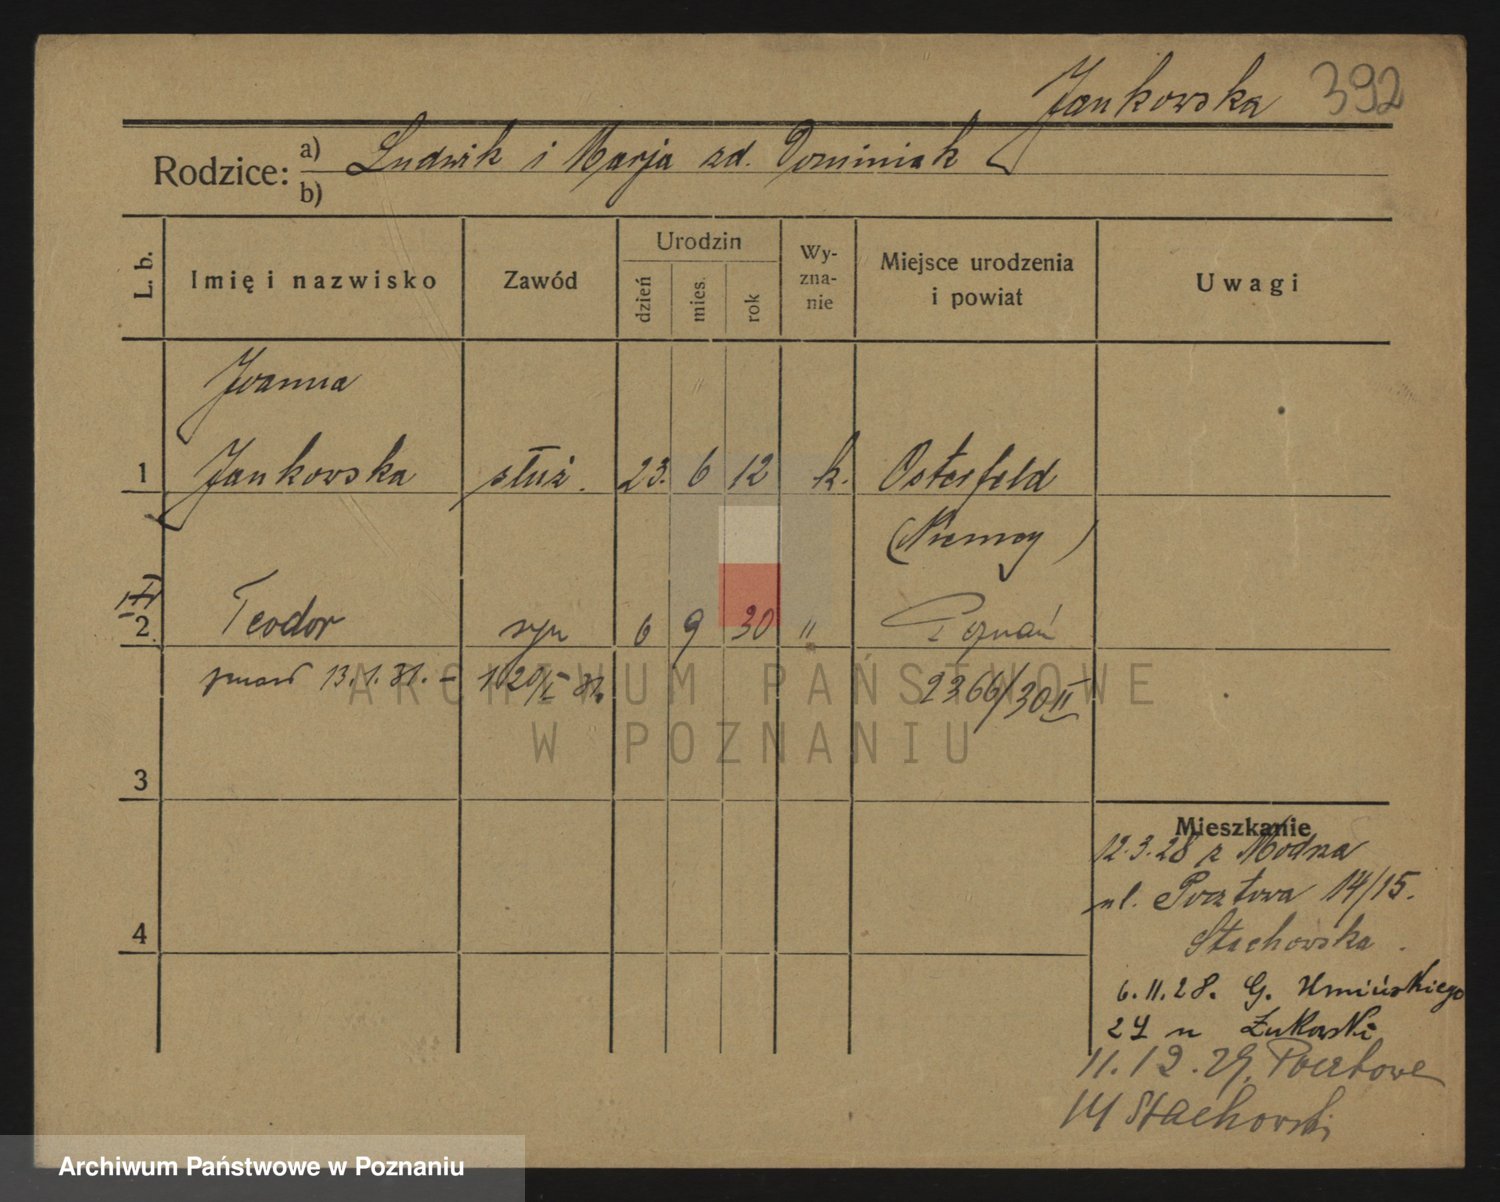 Jankowska 392
Rodzice: a) Ludwik i Marja zd. Dominiak
b)
L. b. Imię i nazwisko Zawód Urodzin dzień mies. rok Wyzna-nie Miejsce urodzenia i powiat Uwagi
Joanna
1 Jankowska służ. 23. 6 12 k. Osterfeld
(Niemcy)
2 Teodor syn 6 9 30 " Poznań
zmarł 13.1.31. – 1020/I 31. 2366/30 II
3
Mieszkanie
12.3.28 z Modrza
ul. Pocztowa 14/15.
4
Stachowska.
6.11.28. G. Umińskiego
24 u Żukowski
11.12.29. Pocztowa
14 Stachowski
ARCHIWUM PAŃSTWOWE
W POZNANIU
Archiwum Państwowe w Poznaniu